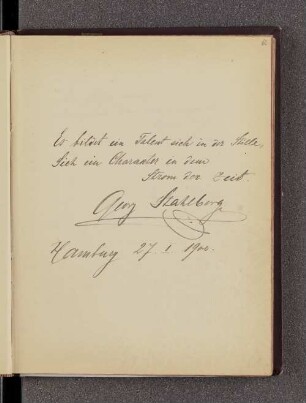 Es bildet ein Talent sich in der Stille,
Sich ein Charakter in dem
Strom der Zeit.
Georg Stahlberg
Hamburg 27. 1. 1900.